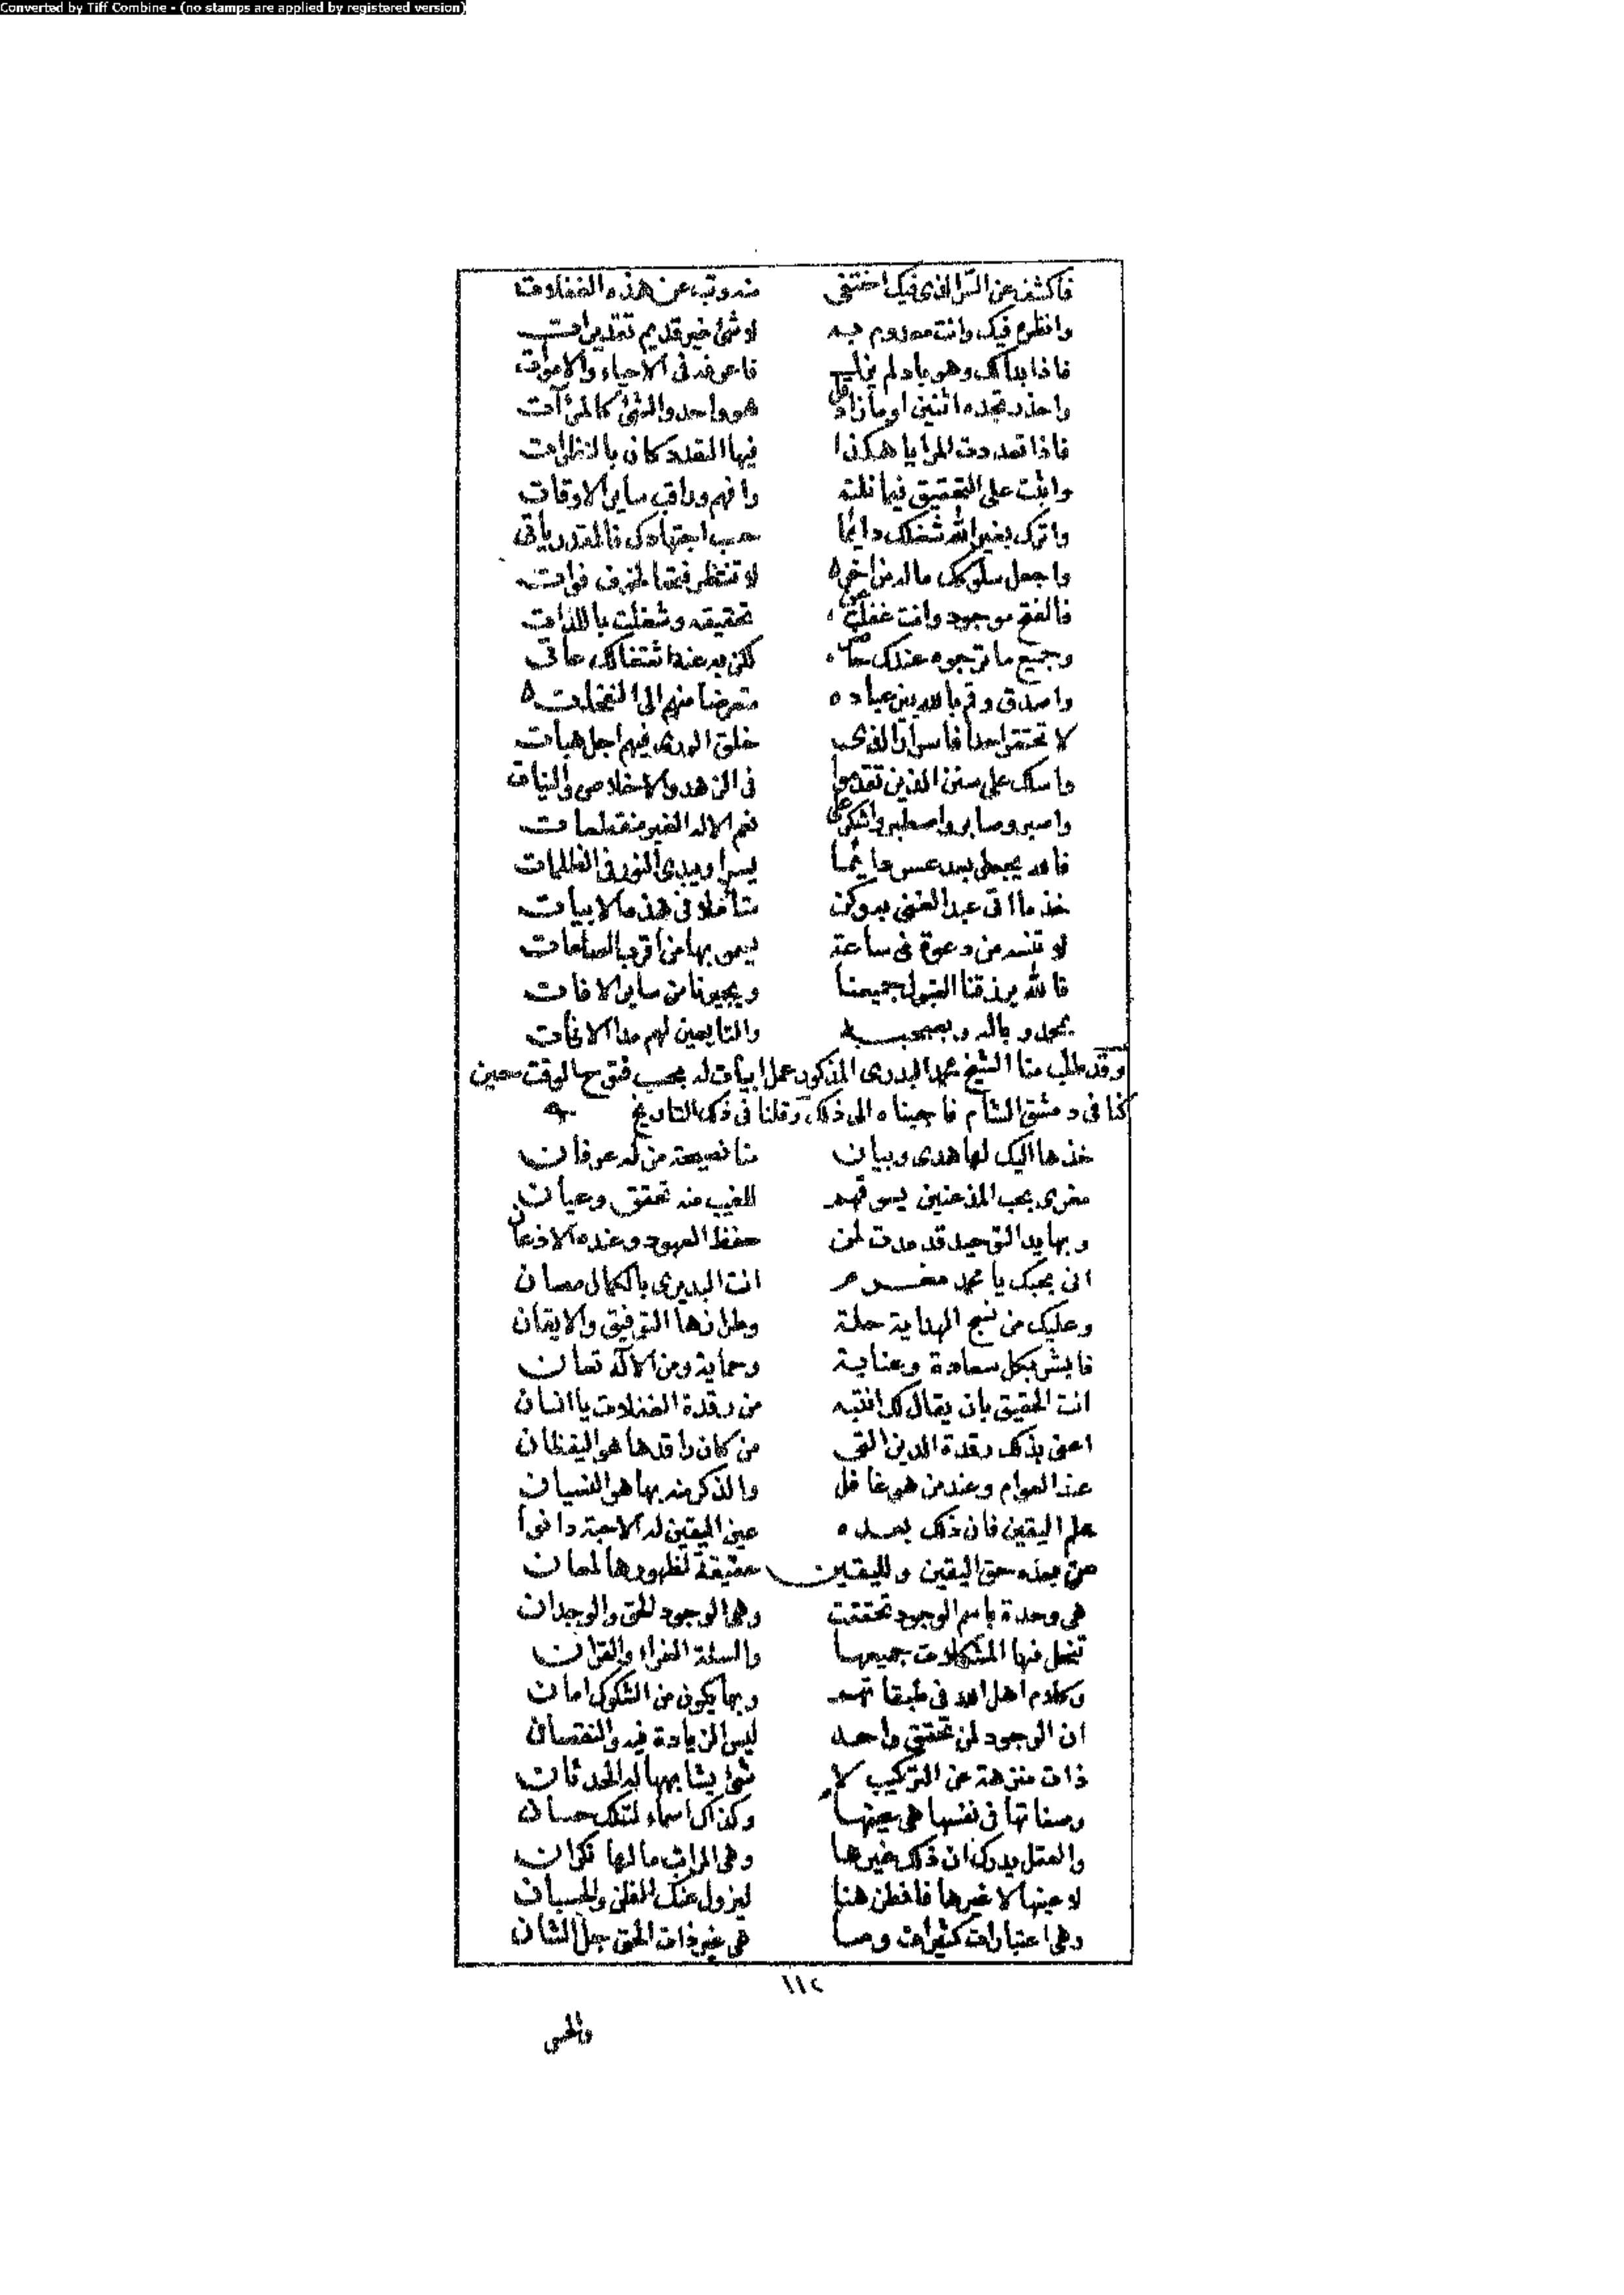 Converted by Tiff Combine - (no stamps are applied by registered version)
فاكشف عن السّر الذى فيك اختفى منه وتب عن هذه الغفلات
وانظره فيك وانت معدوم به لا شئ غير قديم تقديرات
فاذا بدا لك وهو باد لم يغب فاعرفه فى الاحياء والاموات
واحذر تجده اثنين او ما زاد هو واحد والشئ كالمرآت
فاذا تعددت المرايا هكذا فيها التعدد كان بالنظرات
واثبت على التحقيق فيما نلته وافهم وراقب ساير الاوقات
واترك بغير الله شغلك دايما حسب اجتهادك فالمقدر ياتى
واجعل سلوكك ماله من اخره لا تنتظر فتحا لخوف فوات
فالفتح موجود وانت غفلت عن تحقيقه وشغلت باللذات
وجميع ما ترجوه عندك لكن به عند اشتغالك عاتى
واصدق وقم بالله بين عباده متعرضا منهم الى النفحات
لا تحتقر احدا فاسرار الذى خلق الورى فيهم اجل هبات
واسلك على سنن الذين تقدموا فى الزهد والاخلاص والنيات
واصبر وصابر واصطبر واشكر على نعم الاله الغير منقطعات
فالله يجعل بعد عسر دايما يسرا ويبدى النور فى الظلمات
خذ ما اتى عبد الغنى به وكن متأملا فى هذه الابيات
لا تنسه من دعوة فى ساعة يسمو بها من اقرب الساعات
فالله يرزقنا القبول جميعنا ويجيرنا من ساير الافات
بمحمد وباله وبصحبه والتابعين لهم مدا الانات
وقد طلب منا الشيخ محمد البدرى المذكور عمل ابيات له بحسب فتوح الوقت حين
كنا فى دمشق الشام فاجبناه الى ذلك وقلنا فى ذلك التاريخ
خذها اليك لها هدى وبيان منا نصيحة من له عرفان
مغرى بحب المذعنين يسوقهم للغيب منه تحقق وعيان
وبها يد التوحيد قد مدت لمن حفظ العهود وعنده الاذعان
انى بحبك يا محمد مغرم انت البديرى بالكمال مصان
وعليك من نسج الهداية حلة وطرازها التوفيق والايقان
فابشر بكل سعادة وعناية وحماية ومن الاله تعان
انت الحقيق بان يقال لك انتبه من رقدة الغفلات يا انسان
اعنى بذلك رقدة الدين التى من كان راقدها هو اليقظان
عند العوام وعند من هو غافل والذكر منه بها هو النسيان
علم اليقين فان ذلك بعده عين اليقين له الاحبة دانوا
من بعده حق اليقين ولليقين حقيقة لظهورها لمعان
هى وحدة باسم الوجود تحققت وهى الوجود الحق والوجدان
تنحل منها المشكلات جميعها والسنة الغراء والقران
وكلام اهل الله فى طبقاتهم وبها يكون من الشكوك امان
ان الوجود لمن تحقق واحد ليس الزيادة فيه والنقصان
ذات منزهة عن التركيب لا شئ يشابهها له الحدثان
وصفاتها فى نفسها هى عينها وكذاك اسماء لتلك حسان
والعقل يدرك ان ذلك غيرها وهى المراتب ما لها نكران
لا عينها لا غيرها فافطن هنا ليزول عنك الظن والحسبان
وهى اعتبارات كثيرات وما هى غير ذات الحق جل الشان
١١٢
والحس